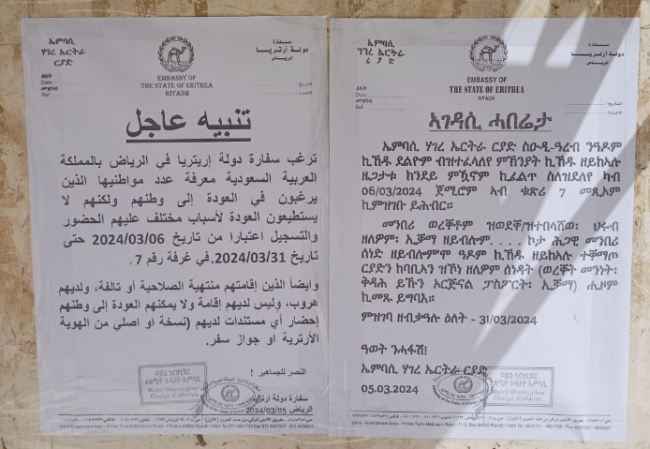 ኤምባሲ
ሃገረ ኤርትራ
ርያድ
سفارة
دولة أرتريا
الرياض
EMBASSY OF
THE STATE OF ERITREA
RIYADH
ዕለት
Date
መዝገብ
Ref
التاريخ
تنبيه عاجل
ترغب سفارة دولة إريتريا في الرياض بالمملكة
العربية السعودية معرفة عدد مواطنيها الذين
يرغبون في العودة إلى وطنهم ولكنهم لا
يستطيعون العودة لأسباب مختلف عليهم الحضور
والتسجيل اعتبارا من تاريخ 2024/03/06 حتى
تاريخ 2024/03/31.في غرفة رقم 7.
وايضاً الذين إقامتهم منتهية الصلاحية أو تالفة، ولديهم
هروب، وليس لديهم إقامة ولا يمكنهم العودة إلى وطنهم
إحضار أي مستندات لديهم (نسخة او اصلي من الهوية
الأرترية او جواز سفر.
النصر للجماهير
سفارة دولة ارتريا
الرياض 2024/03/05
ኤምባሲ
ሃገረ ኤርትራ
ሪያድ
سفارة
دولة أرتريا
الرياض
EMBASSY OF
THE STATE OF ERITREA
RIYADH
ዕለት
Date
መዝገብ
Ref
التاريخ
ኣገዳሲ ሓበሬታ
ኤምባሲ ሃገረ ኤርትራ ርያድ ስዑዲ-ዓረብ ንዓዶም
ኪኸዱ ደልዮም ብዝተፈላለየ ምኽንያት ኪኸዱ ዘይከኣሉ
ዜጋታቱ ክንደይ ምዃኖም ኪፈልጥ ስለዝደለየ ካብ
06/03/2024 ጀሚሮም ኣብ ቁጽሪ 7 መጺኦም
ኪምዝገቡ ይሕብር።
መንበሪ ወረቐቶም ዝወደቐ/ዝተበላሸወ፡ ህሩብ
ዘለዎም፡ ኢቓማ ዘይብሎም. . . . ኮታ ሕጋዊ መንበሪ
ሰነድ ዘይብሎምሞ ዓዶም ኪኸዱ ዘይከኣሉ ተቐማጦ
ርያድን ከባቢኣን ዝኾነ ዘለዎም ሰነዳት (ወረቐት መንነት፡
ቅዳሕ ይኹን ኦርጅናል ፓስፖርት፡ ኢቓማ) ሒዞም
ኪመጹ ይግባእ።
ምዝገባ ዘብቃዓሉ ዕለት - 31/03/2024
ዓወት ንሓፋሽ!
ኤምባሲ ሃገረ ኤርትራ ርያድ
05.03.2024